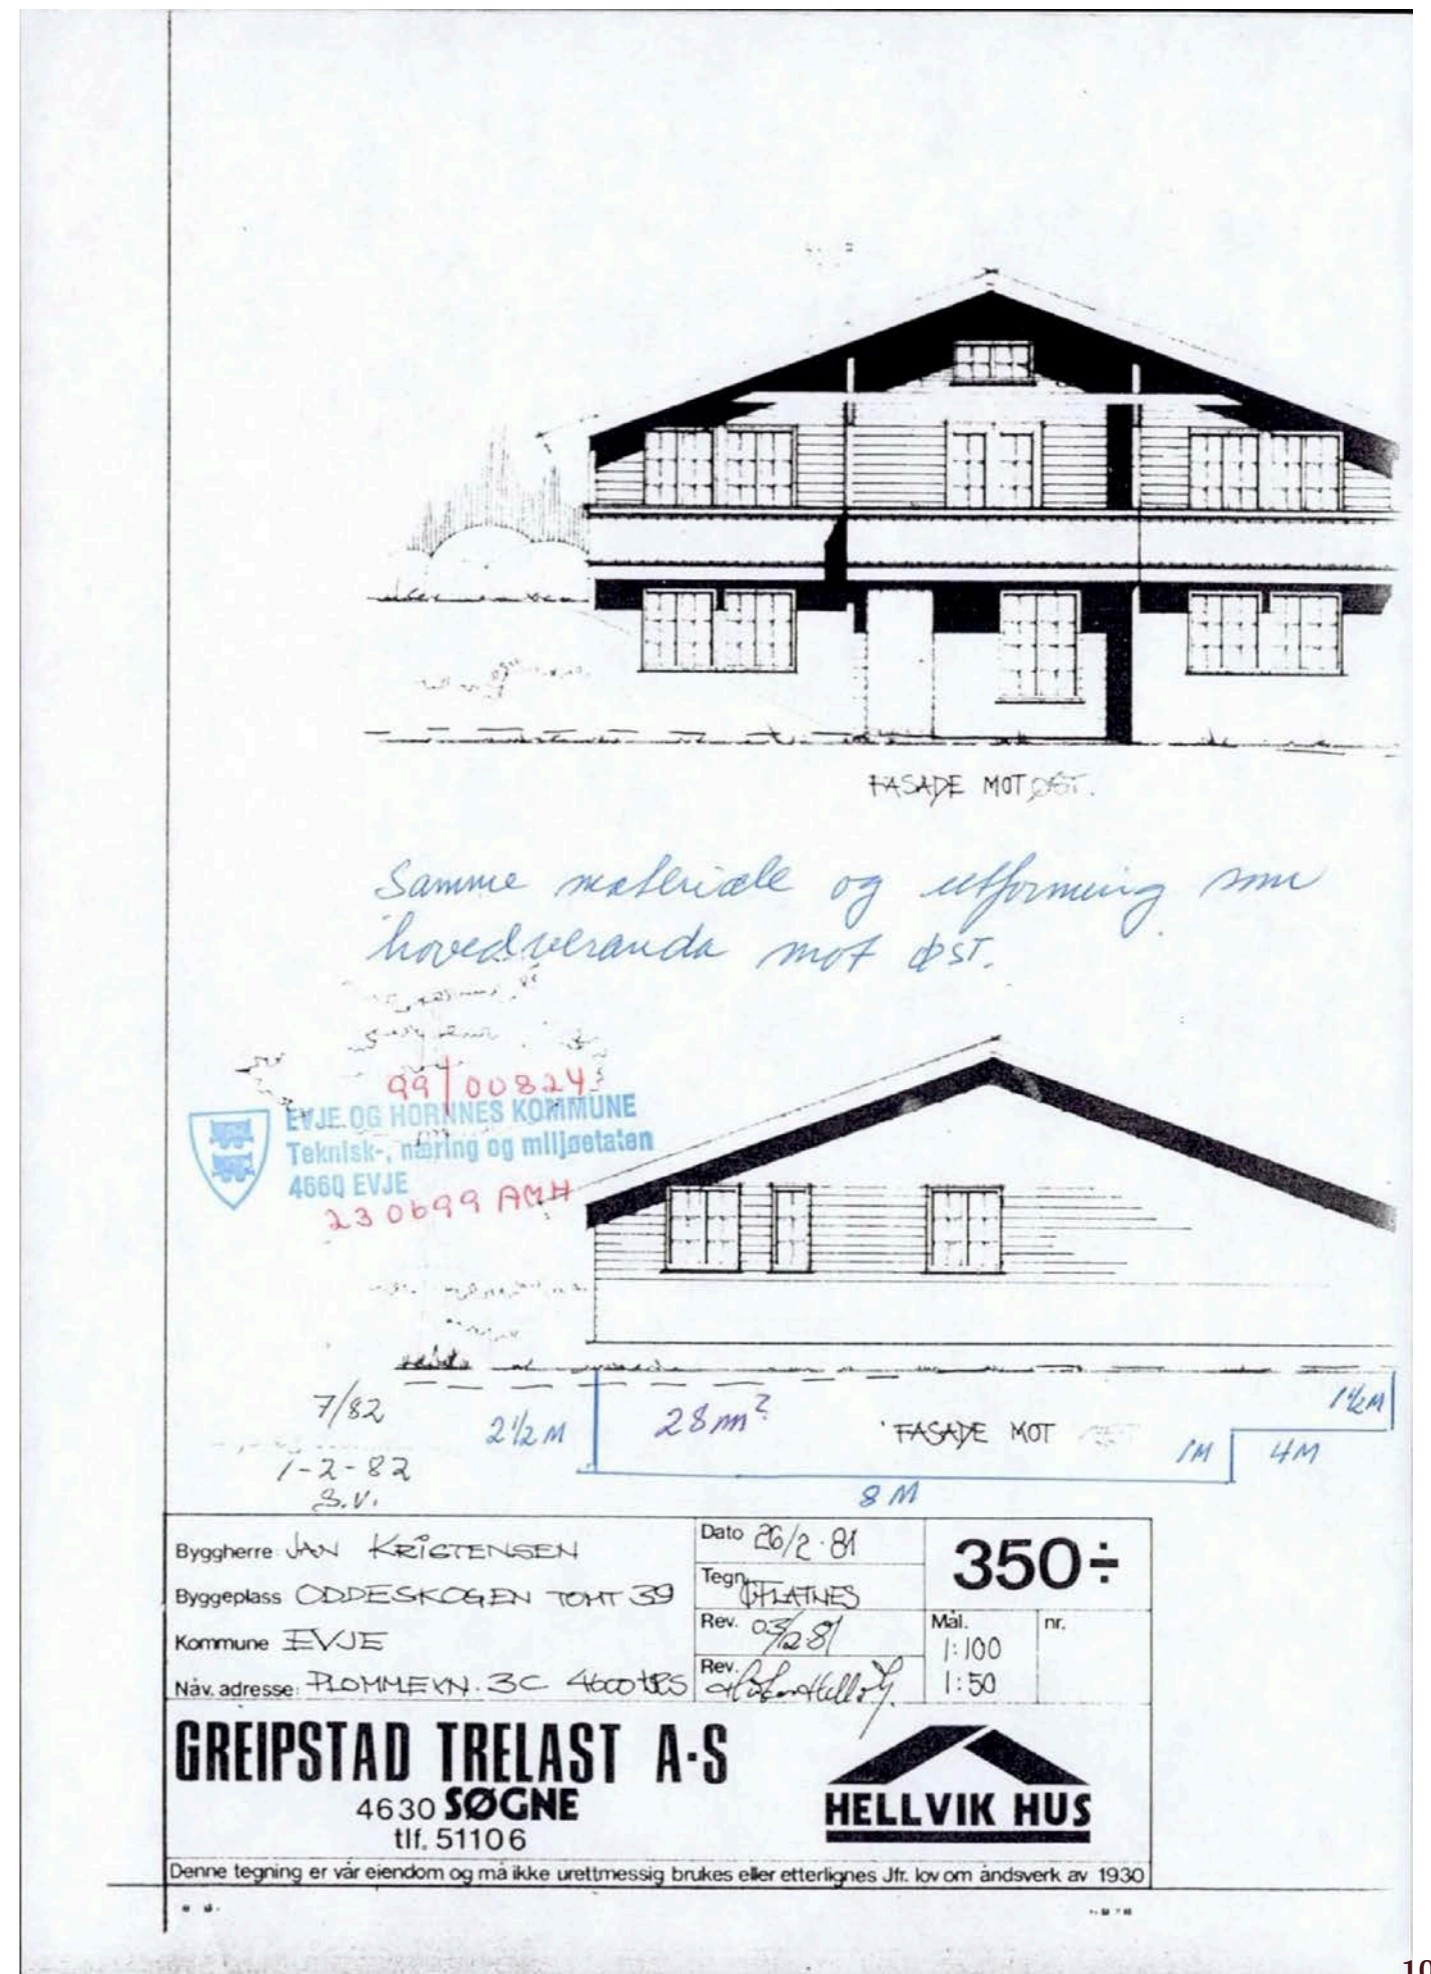 FASADE MOT ØST.
Samme materiale og utforming som
hovedveranda mot ØST.
99/00824
EVJE OG HORNNES KOMMUNE
Teknisk-, næring og miljøetaten
4660 EVJE
230699 AMH
7/82
1-2-82
S.V.
2 1/2 M
28 m²
FASADE MOT
1 1/2 M
1M
4M
8 M
Byggherre: JAN KRISTENSEN
Byggeplass ODDESKOGEN TOMT 39
Kommune EVJE
Nåv. adresse: PLOMMEVN. 3C 4600 KRS
Dato 26/2-81
Tegn. FLATNES
Rev. 03/2 81
Rev.
350÷
Mål.
1:100
1:50
nr.
GREIPSTAD TRELAST A·S
4630 SØGNE
tlf. 51106
HELLVIK HUS
Denne tegning er vår eiendom og må ikke urettmessig brukes eller etterlignes Jfr. lov om åndsverk av 1930
10